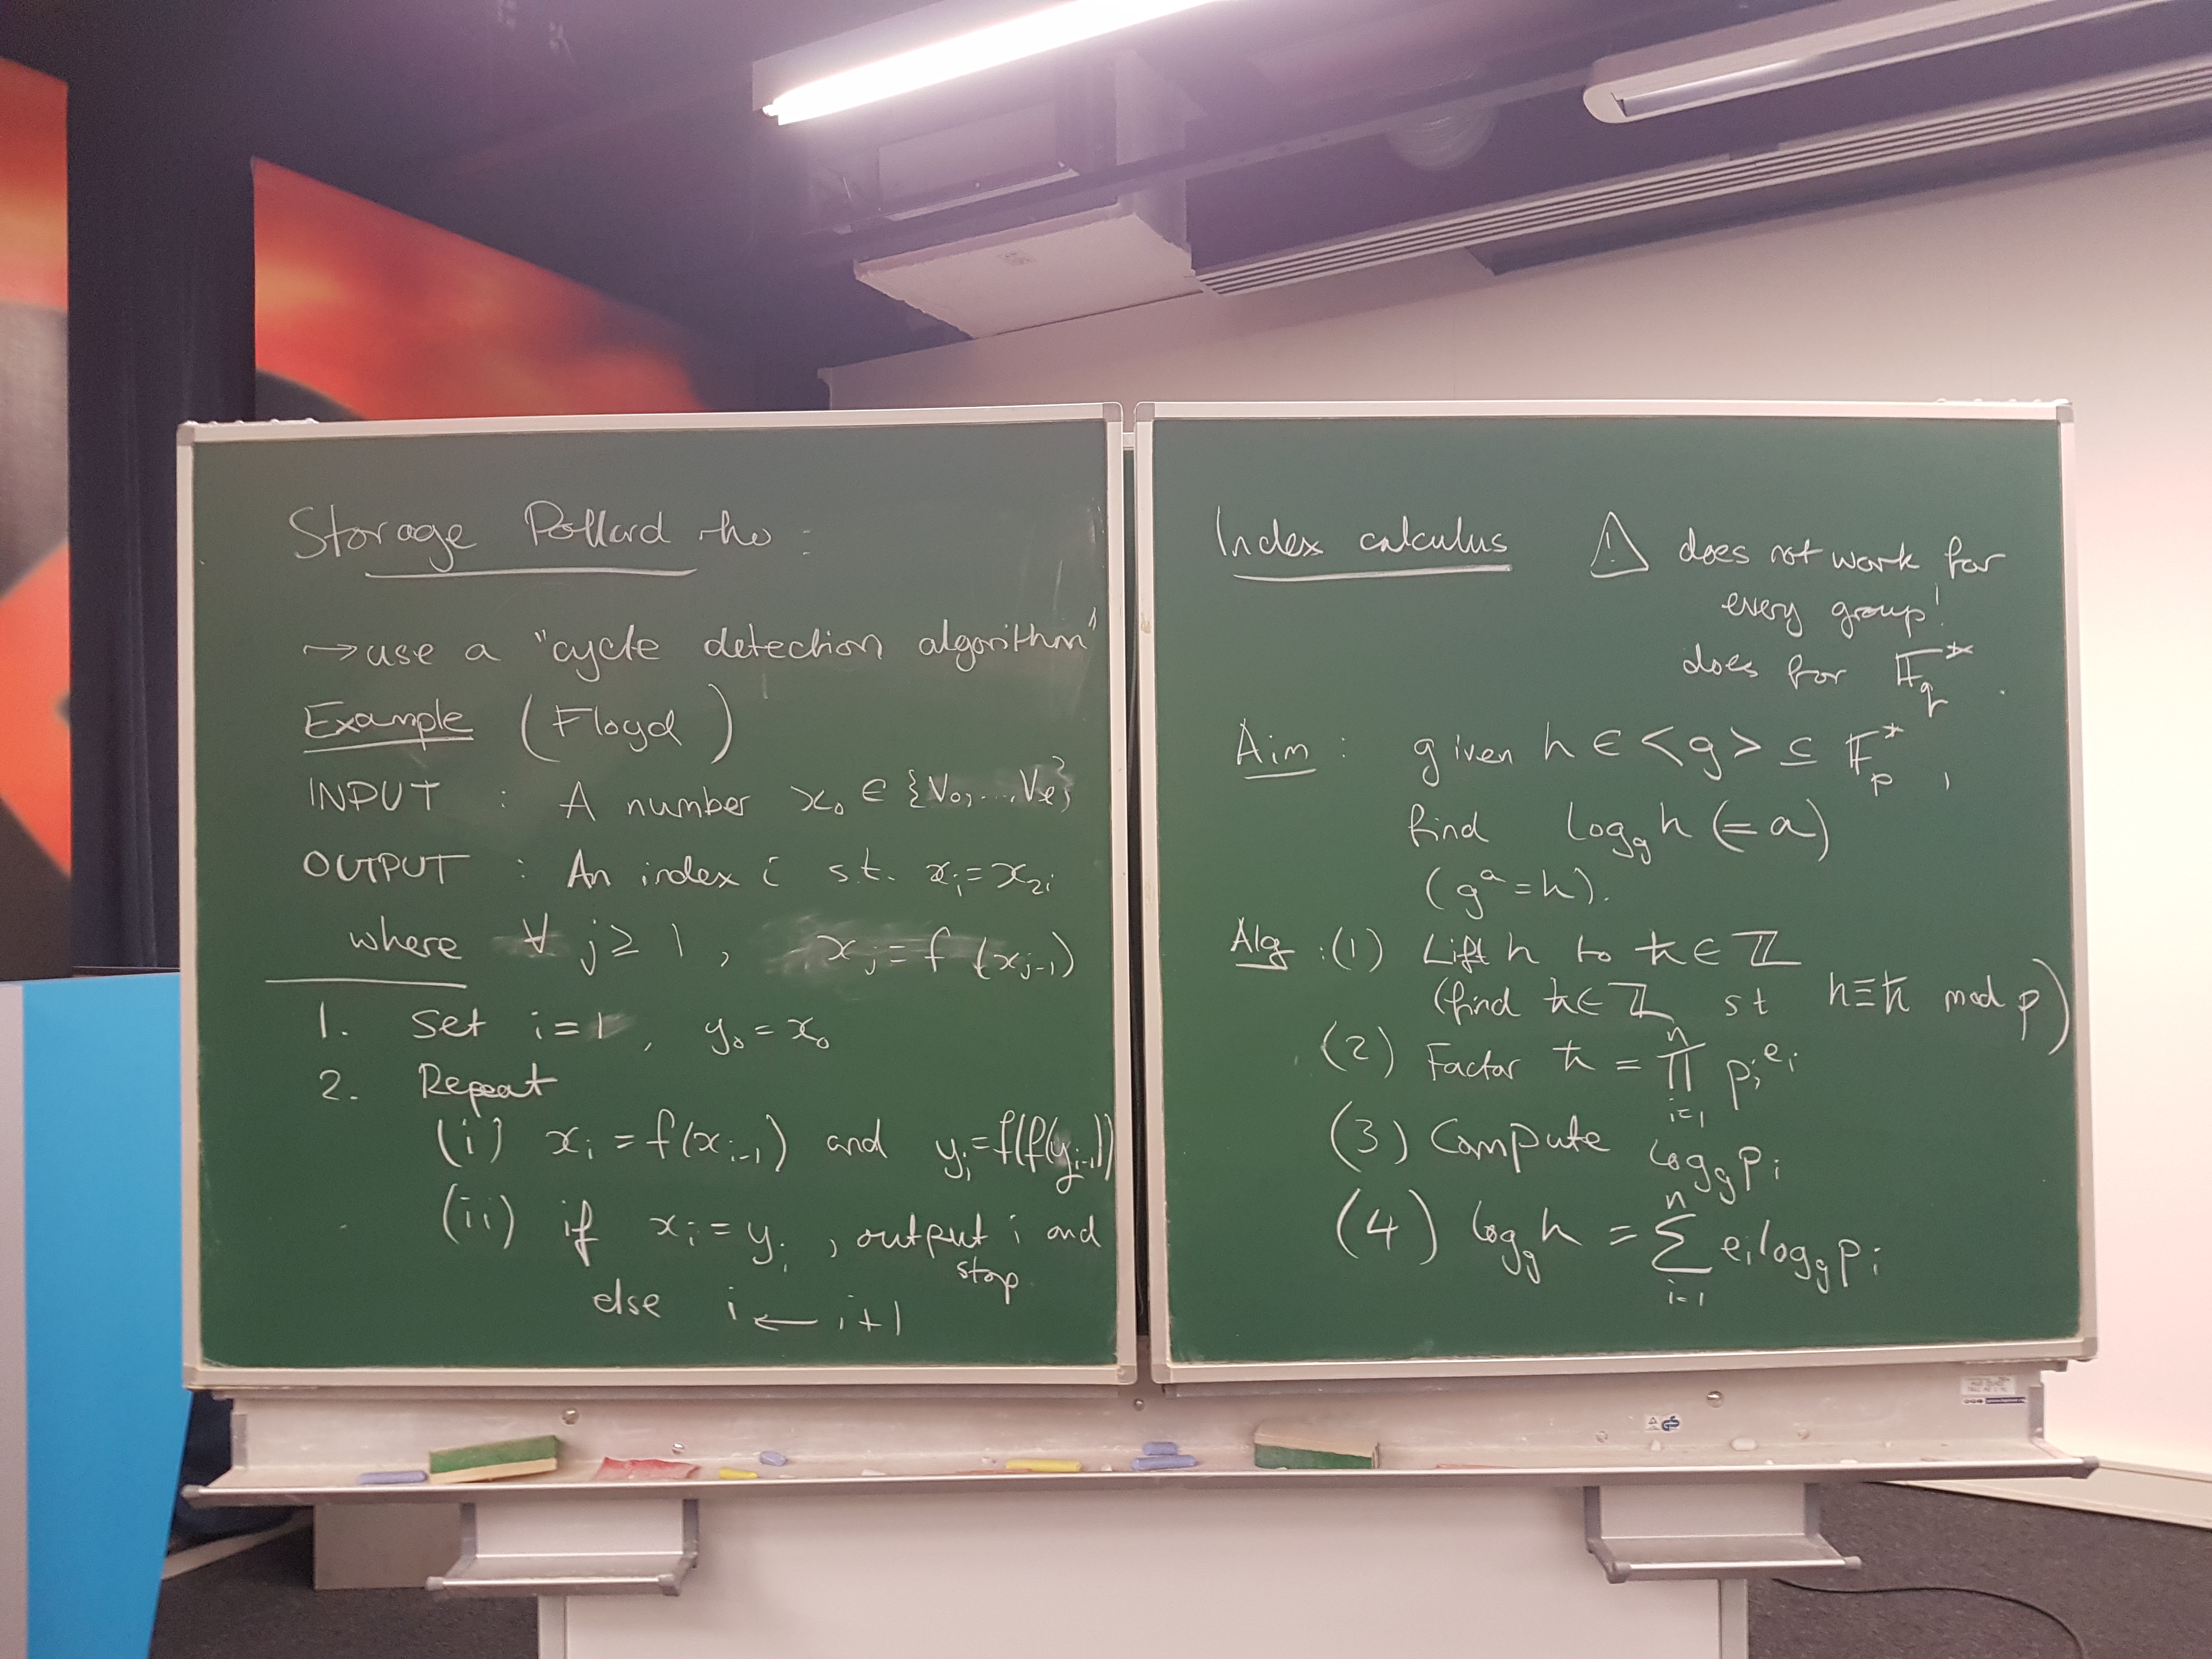 Storage Pollard rho :
→ use a "cycle detection algorithm"
Example (Floyd)
INPUT : A number x₀ ∈ {V₀, ..., Vₑ}
OUTPUT : An index i s.t. xᵢ = x₂ᵢ
where ∀ j ≥ 1, xⱼ = f(xⱼ₋₁)
1. Set i = 1, y₀ = x₀
2. Repeat
(i) xᵢ = f(xᵢ₋₁) and yᵢ = f(f(yᵢ₋₁))
(ii) if xᵢ = yᵢ, output i and
stop
else i ← i+1
Index calculus ⚠ does not work for
every group!
does for 𝔽_q*.
Aim : given h ∈ <g> ⊆ 𝔽_p*,
find log_g h (= a)
(gᵃ = h).
Alg : (1) Lift h to ħ ∈ ℤ
(find ħ ∈ ℤ st h ≡ ħ mod p)
(2) Factor ħ = ∏_{i=1}^{n} pᵢ^{eᵢ}
(3) Compute log_g pᵢ
(4) log_g h = ∑_{i=1}^{n} eᵢ log_g pᵢ